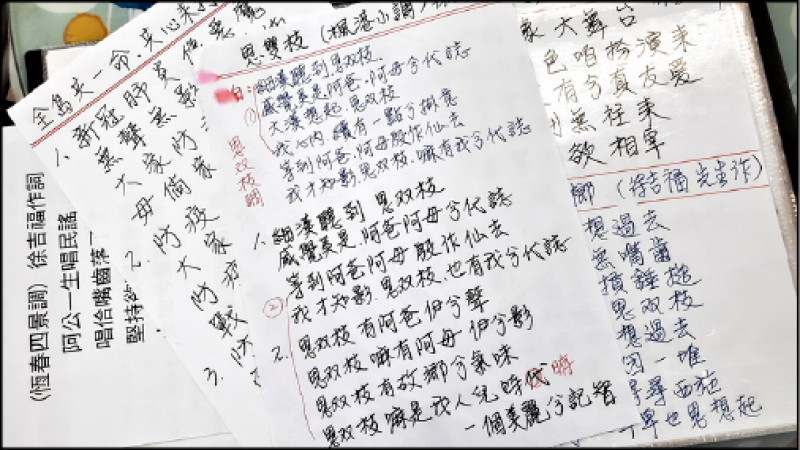 思雙枝 (楓港小調)
白:
①
細漢聽到思双枝
感覺是阿爸.阿母兮代誌
大漢想起.思双枝
我心內.續有一點兮掛意
等到阿爸.阿母股作仙去
我才知影思双枝.嘛有我兮代誌
思双枝調
1. 細漢聽到 思双枝
感覺是.阿爸阿母兮代誌
等到阿爸阿母股作仙去
我才知影.思双枝.也有我兮代誌
②
2. 思双枝有阿爸伊兮聲
思双枝嘛有阿母伊兮影
思双枝有故鄉兮氣味
思双枝嘛是我人細時代
一個美麗兮記智
全島夫一命.夫心
1. 新冠肺炎
無聲無影
大家防
毋倘
2. 防疫
大家
防疫戰
3. 防
(恆春四景調) 徐吉福作詞
阿公一生唱民謠
唱佮嘴齒落
堅持
家大舞台
色咱扮演來
有兮真友愛
無往來
欲相牽
鄉 (徐吉福先生作)
想過去
無嘴齒
損錘槌
思双枝
想過去
因一唯
尋西施
也思想起